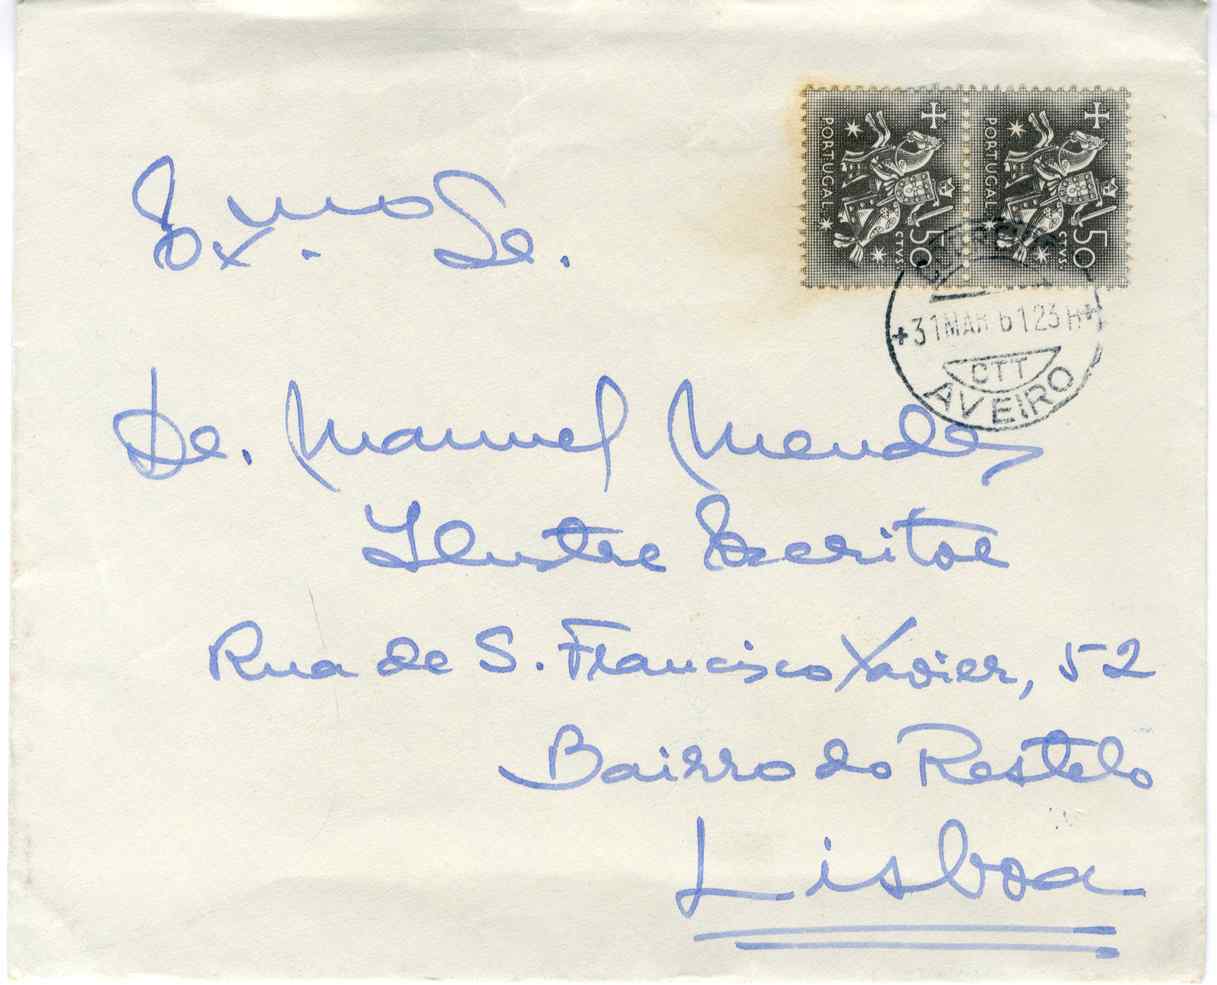 PORTUGAL 50 CTVS.
PORTUGAL 50 CTVS.
+31 MAR 61 23H+
CTT
AVEIRO
Exmo. Sr.
Dr. Manuel Mendes
Ilustre Escritor
Rua de S. Francisco Xavier, 52
Bairro do Restelo
Lisboa